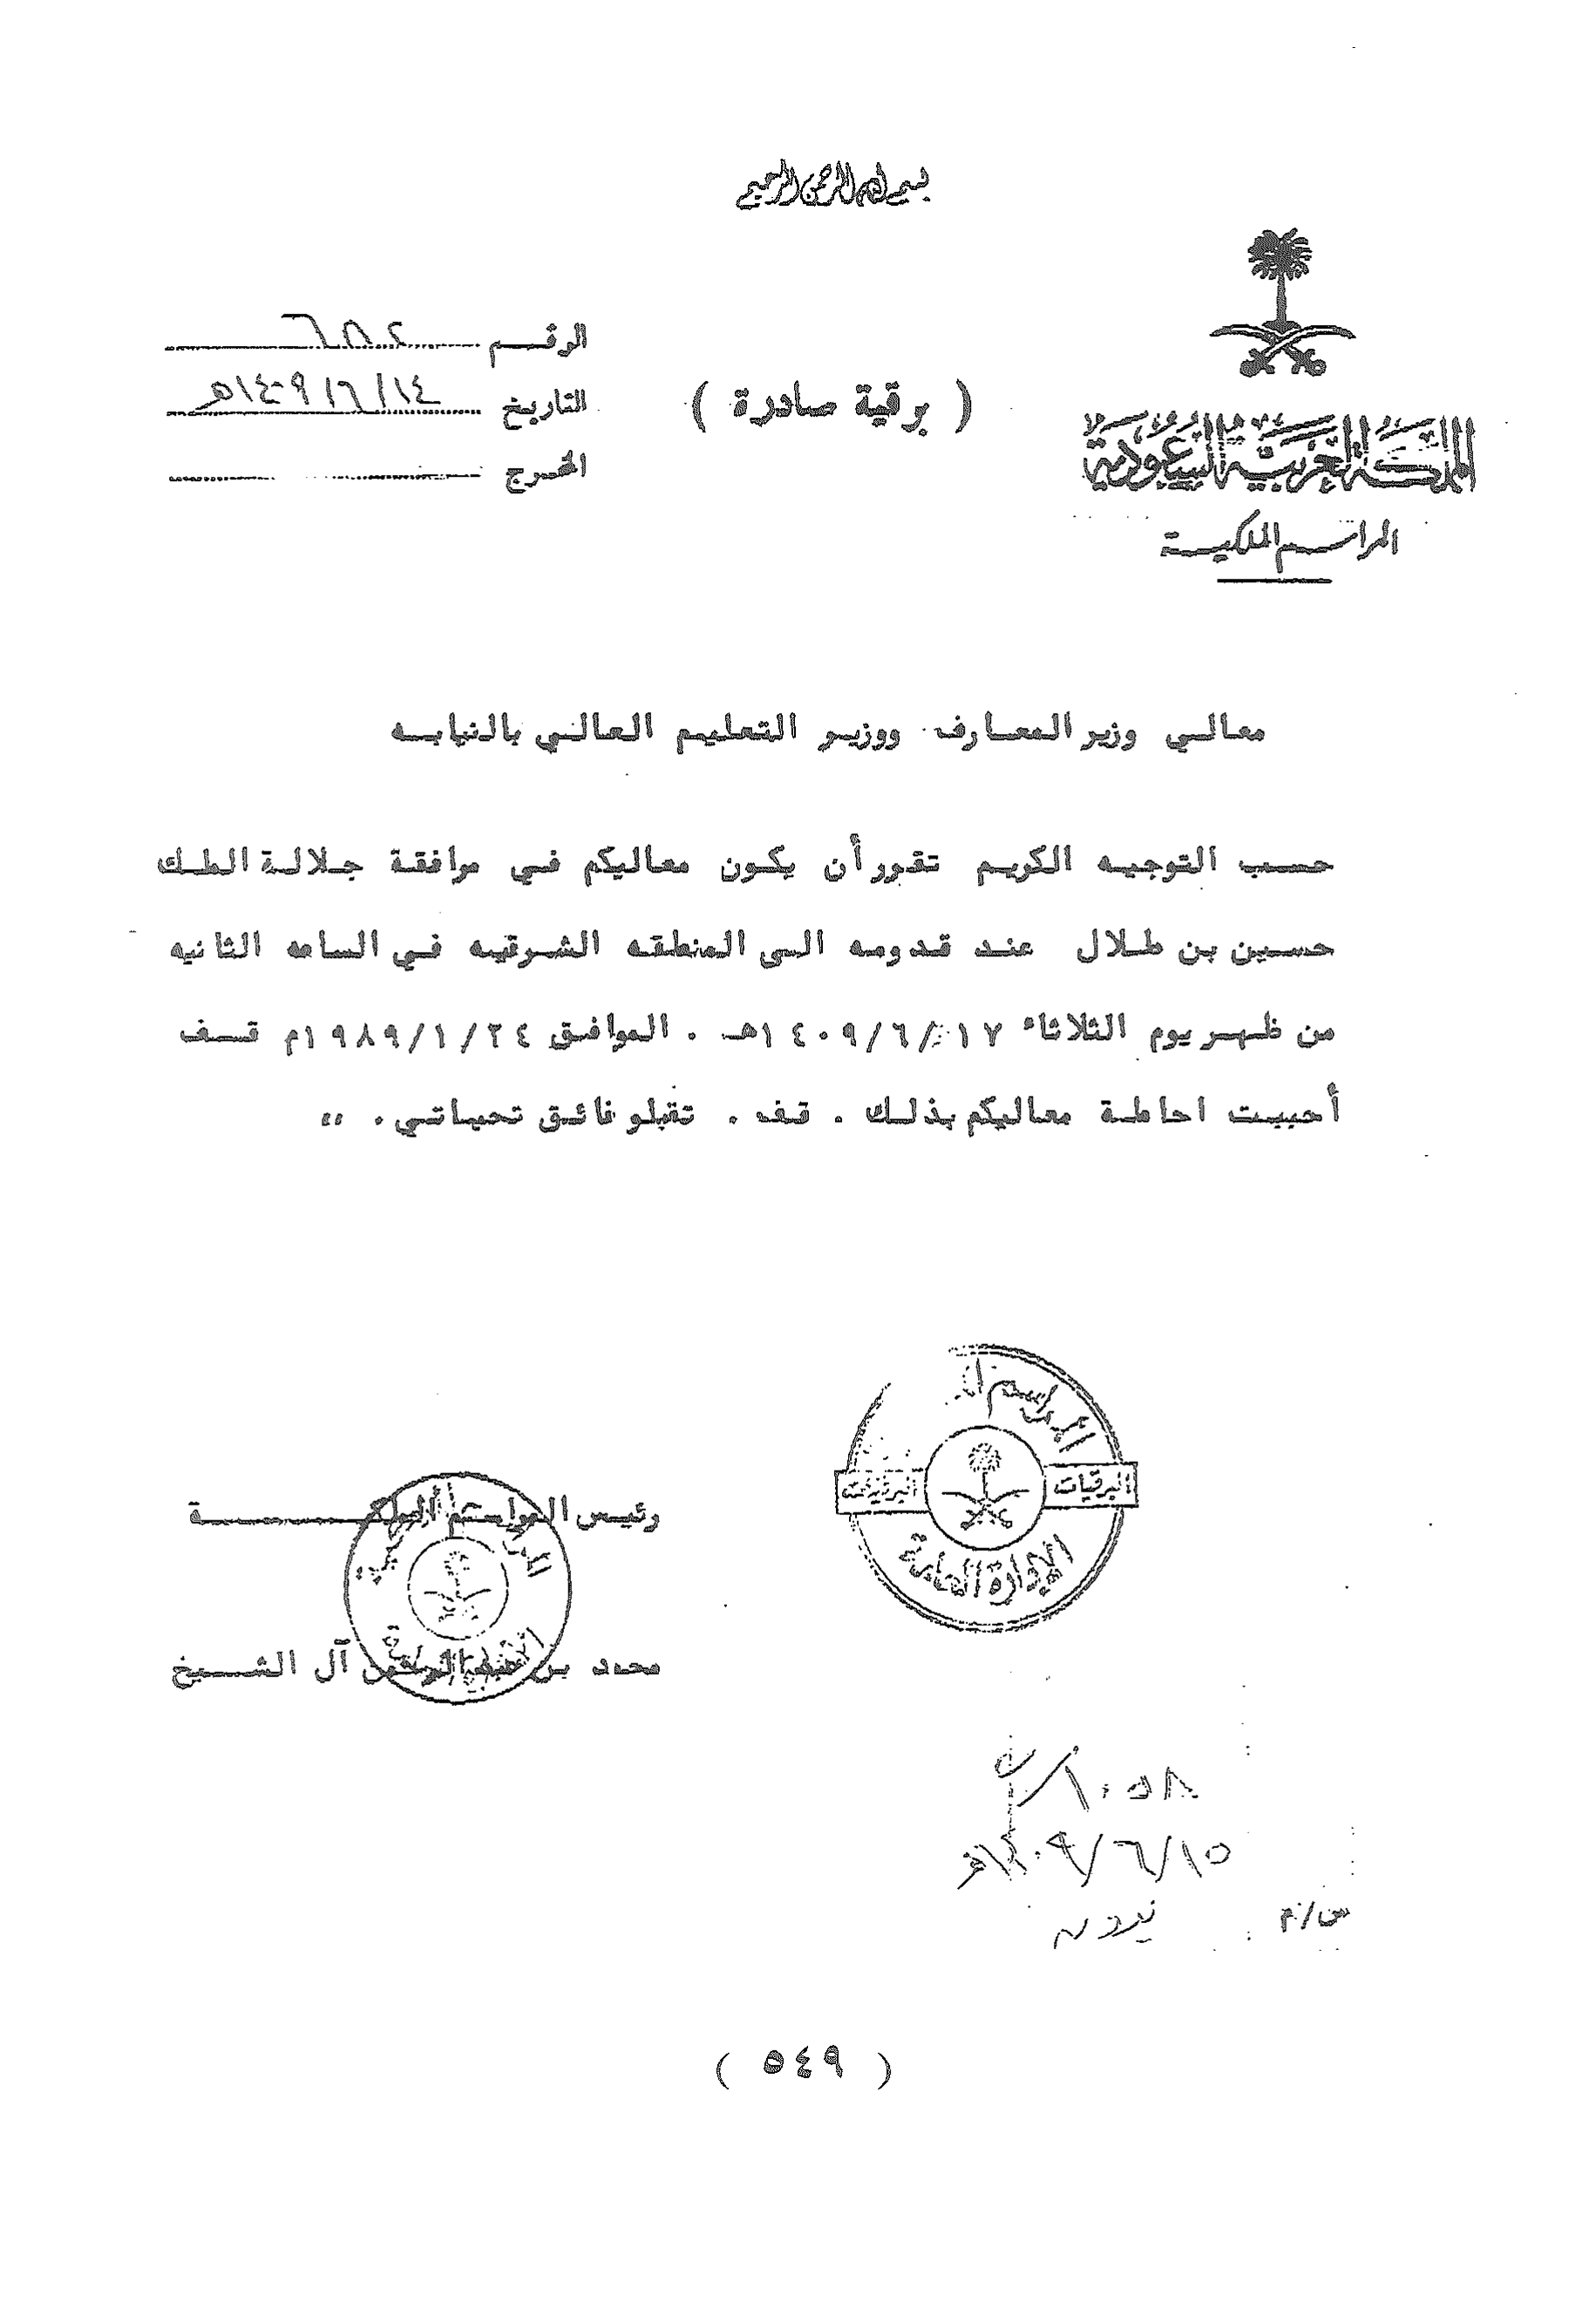 بسم الله الرحمن الرحيم
المملكة العربية السعودية
المراسم الملكية
( برقية صادرة )
الرقم
التاريخ ١٤٠٩/٦/١٤هـ
المخرج
معالي وزير المعارف ووزير التعليم العالي بالنيابه
حسب التوجيه الكريم تقرر أن يكون معاليكم في موافقة جلالة الملك
حسين بن طلال عند قدومه الى المنطقه الشرقيه في الساعه الثانيه
من ظهر يوم الثلاثاء ١٤٠٩/٦/١٧هـ . الموافق ١٩٨٩/١/٢٤م قف
أحببت احاطة معاليكم بذلك . قف . تقبلو فائق تحياتي . ،،
المراسم
البرقيات
البرقيات
الإدارة العامة
رئيس المراسم الملكية
محمد بن عبد الرحمن آل الشيخ
١٠٥٨/
١٤٠٩/٦/١٥هـ
س/م
( ٥٤٩ )